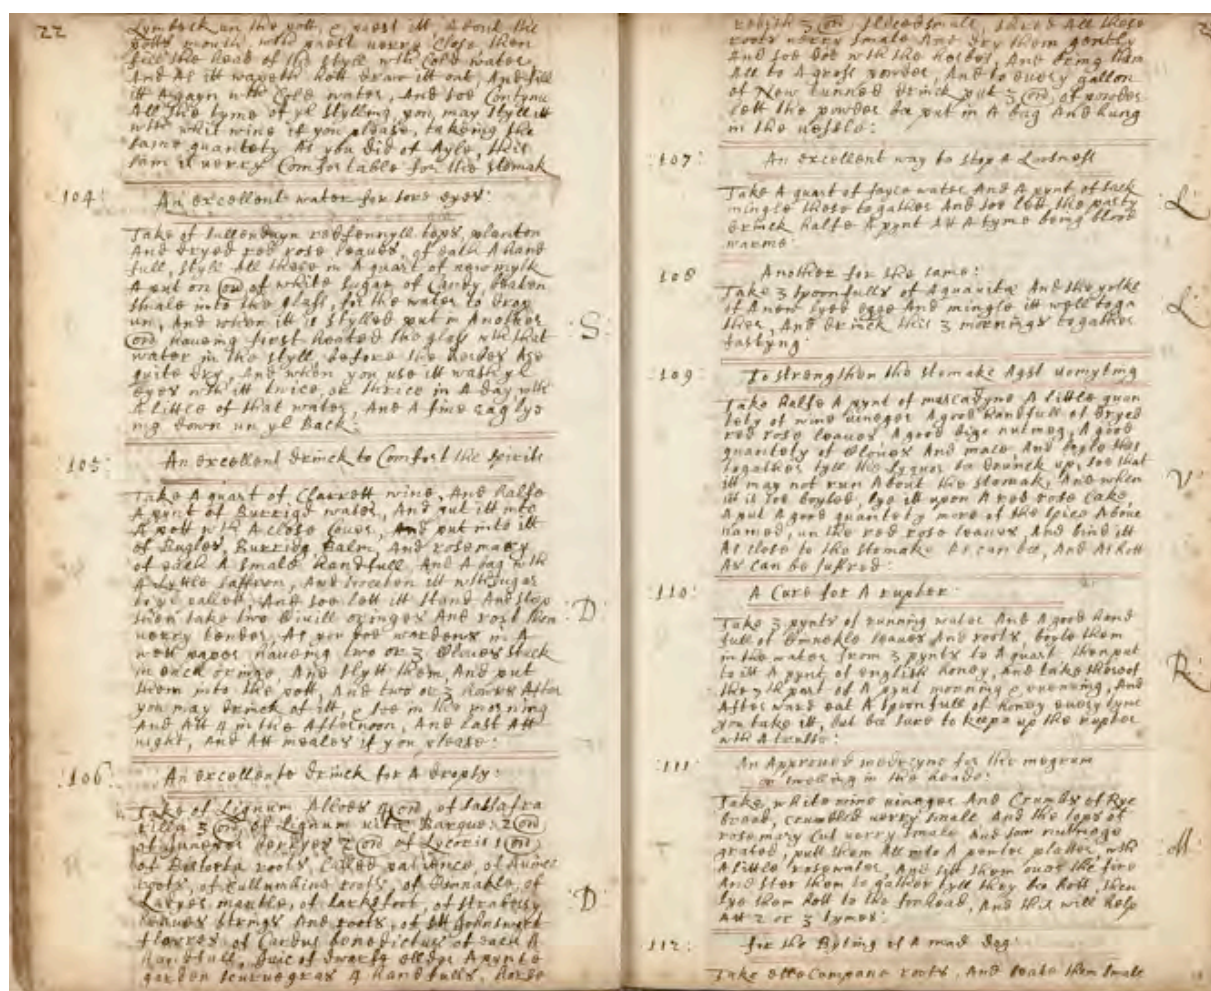 22
Lymbeck on the pott, & past itt About the
potts mouth, with past verry Close, then
fill the head of the styll with Cold water
And As itt waxeth hott draw itt out, And fill
itt Agayn with Cold water, And soe Contynu
All the tyme of ye stylling, you may styll itt
with whit wine if you please, takeing the
same quantety As you did of Ayle, this
sam is verry Comfortable for the stomak
104: An excellent water for sore eyes:
Take of sullendayn red fennyll tops, planton
And dryed red rose leaves, of each A hand
full, styll All these in A quart of new mylk
& put on oz of white sugar of Candy, beaten
smale into the glass, for the water to drop
un, And when itt is stylled put in Another
oz, haveing first heated the glass with that
water in the styll, before the herbes Are
quite dry, And when you use itt wash ye
eyes with itt twice, or thrice in A day, with
A little of that water, And A fine rag lye
ing down un ye Back:
:S:
105: An excellent drinck to Comfort the spirits
Take A quart of Clarrett wine, And halfe
A pynt of Burrige water, And put itt into
A pott with A close Cover, And put into itt
of Bugles, Burrige, Balm, And rosemary
of each A smale handfull, And A bag with
A Lyttle saffron, And sweeten itt with sugar
to ye pallett, And soe lett itt stand And stop
then take two Sivill oringes And rost them
verry tender, As you doe wardens in A
wett paper haveing two or 3 Cloves stuck
in each oringe, And slytt them, And put
them into the pott, And two or 3 howrs After
you may drinck of itt, & soe in the morning
And Att 4 in the Afternoon, And last Att
night, And Att meales if you please:
:D:
106: An excellente drinck for A dropsy:
Take of Lignum Alloes oz, of sassafra
rilla 3 oz, of Lignum vita Barque: 2 oz
of Juneper berryes 2 oz of Lycoris 1 oz
of Bistorta roots, Called patience, of Avince
roots, of Cullumbine roots, of
Ladyes mantle, of Larksfoot, of strabery
leaves strings And roots, of St Johnswort
flowres, of Cardus benedictus of each A
handfull, Juic of dwarfe ellder A pynte
garden scurvegras 4 handfulls, horse
:D:
redish 3 oz, sliced smale, shred All these
roots verry smale And dry them gently
And soe doe with the herbes, And bring them
All to A gross powder, And to every gallon
of New tunned drinck put 3 oz, of powder
lett the powder be put in A bag And hung
in the vessle:
:107: An excellent way to stop A Loosness
Take A quart of fayre water And A pynt of sack
mingle these togather And soe lett the party
drinck halfe A pynt Att A tyme being blood
warme:
:L:
108 Another for the same:
Take 3 spoonfulls of Aquavita And the yolke
of A new layed egge And mingle itt well toga
ther, And drinck this 3 mornings togather
fastyng:
:L:
:109: To strengthen the stomake Agst vomyting
Take halfe A pynt of muscadyne A little quan
tety of wine vineger A good handfull of dryed
red rose leaves A good bige nutmeg, A good
quantety of Cloves And mace, And boyle this
togather tyll the lyquor be drunck up, soe that
itt may not run About the stomak, And when
itt is soe boyled, lye itt upon A red rose Cake,
& put A good quantety more of the spice Above
named, un the red rose leaves, And bind itt
As close to the stomake As can bee, And As hott
As can be suffred:
:V:
:110: A Cure for A rupter:
Take 3 pynts of running water And A good hand
full of leaves And roots, boyle them
in the water from 3 pynts to A quart then put
to itt A pynt of english honey, And take thereof
the part of A pynt morning & evening, And
After ward eat A spoonfull of honey every tyme
you take itt, but be sure to keepe up the rupter
with A trusse:
:R:
:111: An Approved medesyne for the megrum
or swelling in the heade:
Take, white wine vineger And Crumbs of Rye
bread, crumbled verry smale And the tops of
rosemary Cut verry smale And som nutmege
grated, putt them All into A pewter platter, with
A little rosewater, And sett them over the fire
And ster them to gather tyll they be hott, then
lye them hott to the forhead, And this will help
Att 2 or 3 tymes:
:M:
112: for the Byting of A mad dog:
Take ellecompane roots, And beate them smale